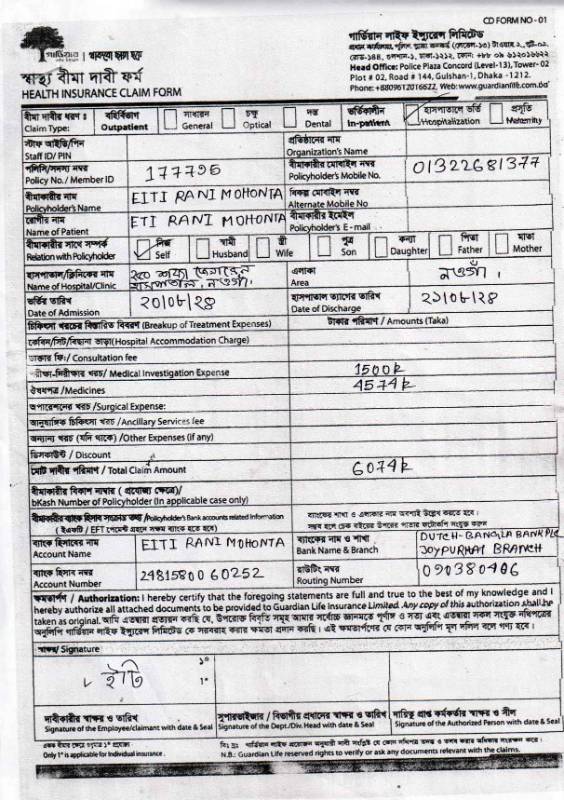 CD FORM NO - 01
গার্ডিয়ান লাইফ ইন্স্যুরেন্স লিমিটেড
Head Office: Police Plaza Concord (Level-13), Tower- 02
Plot # 02, Road # 144, Gulshan-1, Dhaka -1212.
Phone: +8809612016622, Web: www.guardianlife.com.bd
গার্ডিয়ান
স্বাস্থ্য বীমা দাবী ফর্ম
HEALTH INSURANCE CLAIM FORM
বীমা দাবীর ধরণ : বহির্বিভাগ সাধারন চক্ষু দন্ত ভর্তিকালীন হাসপাতালে ভর্তি প্রসূতি
Claim Type: Outpatient General Optical Dental In-patient Hospitalization Maternity
স্টাফ আইডি/পিন প্রতিষ্ঠানের নাম
Staff ID/ PIN Organization's Name
পলিসি/সদস্য নম্বর 177795 বীমাকারীর মোবাইল নম্বর 01322681377
Policy No./ Member ID Policyholder's Mobile No.
বীমাকারীর নাম EITI RANI MOHONTA বিকল্প মোবাইল নম্বর
Policyholder's Name Alternate Mobile No
রোগীর নাম ETI RANI MOHONTA বীমাকারীর ইমেইল
Name of Patient Policyholder's E - mail
বীমাকারীর সাথে সম্পর্ক নিজ স্বামী স্ত্রী পুত্র কন্যা পিতা মাতা
Relation with Policyholder Self Husband Wife Son Daughter Father Mother
হাসপাতাল/ক্লিনিকের নাম এলাকা নওগাঁ।
Name of Hospital/Clinic হাসপাতাল, নওগাঁ। Area
ভর্তির তারিখ হাসপাতাল ত্যাগের তারিখ
Date of Admission Date of Discharge
চিকিৎসা খরচের বিস্তারিত বিবরণ (Breakup of Treatment Expenses) টাকার পরিমাণ / Amounts (Taka)
কেবিন/সিট/বিছানা ভাড়া(Hospital Accommodation Charge)
ডাক্তার ফি:/ Consultation fee
পরীক্ষা-নিরীক্ষার খরচ/ Medical Investigation Expense 1500
ঔষধপত্র /Medicines 4574
অপারেশনের খরচ /Surgical Expense:
আনুষাঙ্গিক চিকিৎসা খরচ /Ancillary Services fee
অন্যান্য খরচ (যদি থাকে) /Other Expenses (if any)
ডিসকাউন্ট / Discount
মোট দাবীর পরিমাণ / Total Claim Amount 6074
বীমাকারীর বিকাশ নাম্বার ( প্রযোজ্য ক্ষেত্রে)/
bKash Number of Policyholder (In applicable case only)
বীমাকারীর ব্যাংক হিসাব সংক্রান্ত তথ্য /Policyholder's Bank accounts related Information
( ইএফটি / EFT পেমেন্ট গ্রহনে সক্ষম ব্যাংক হতে হবে )
ব্যাংকের শাখা ও এলাকার নাম অবশ্যই উল্লেখ করতে হবে।
সম্ভব হলে চেক বইয়ের উপরের পাতার ফটোকপি সংযুক্ত করুন
ব্যাংক হিসাবের নাম EITI RANI MOHONTA ব্যাংকের নাম ও শাখা DUTCH-BANGLA BANK PLC
Account Name Bank Name & Branch JOYPURHAT BRANCH
ব্যাংক হিসাব নম্বর 2481580060252 রাউটিং নম্বর
Account Number Routing Number
ক্ষমতার্পণ / Authorization: I hereby certify that the foregoing statements are full and true to the best of my knowledge and I
hereby authorize all attached documents to be provided to Guardian Life Insurance Limited. Any copy of this authorization shall be
taken as original. আমি এতদ্বারা প্রত্যয়ন করছি যে, উপরোক্ত বিবৃতি সমূহ আমার সর্বোচ্চ জ্ঞানমতে পূর্ণাঙ্গ ও সত্য এবং এতদ্বারা সকল সংযুক্ত নথিপত্রের
অনুলিপি গার্ডিয়ান লাইফ ইন্স্যুরেন্স লিমিটেড কে সরবরাহ করার ক্ষমতা প্রদান করছি। এই ক্ষমতার্পণের যে কোন অনুলিপি মূল দলিল বলে গণ্য হবে।
স্বাক্ষর/ Signature
১*
ইতি 1*
দাবীকারীর স্বাক্ষর ও তারিখ সুপারভাইজার / বিভাগীয় প্রধানের স্বাক্ষর ও তারিখ দায়িত্ব প্রাপ্ত কর্মকর্তার স্বাক্ষর ও সীল
Signature of the Employee/claimant with date & Seal Signature of the Dept./Div. Head with date & Seal Signature of the Authorized Person with date & Seal
Only 1* is applicable for Individual insurance .
N.B.: Guardian Life reserved rights to verify or ask any documents relevant with the claims.